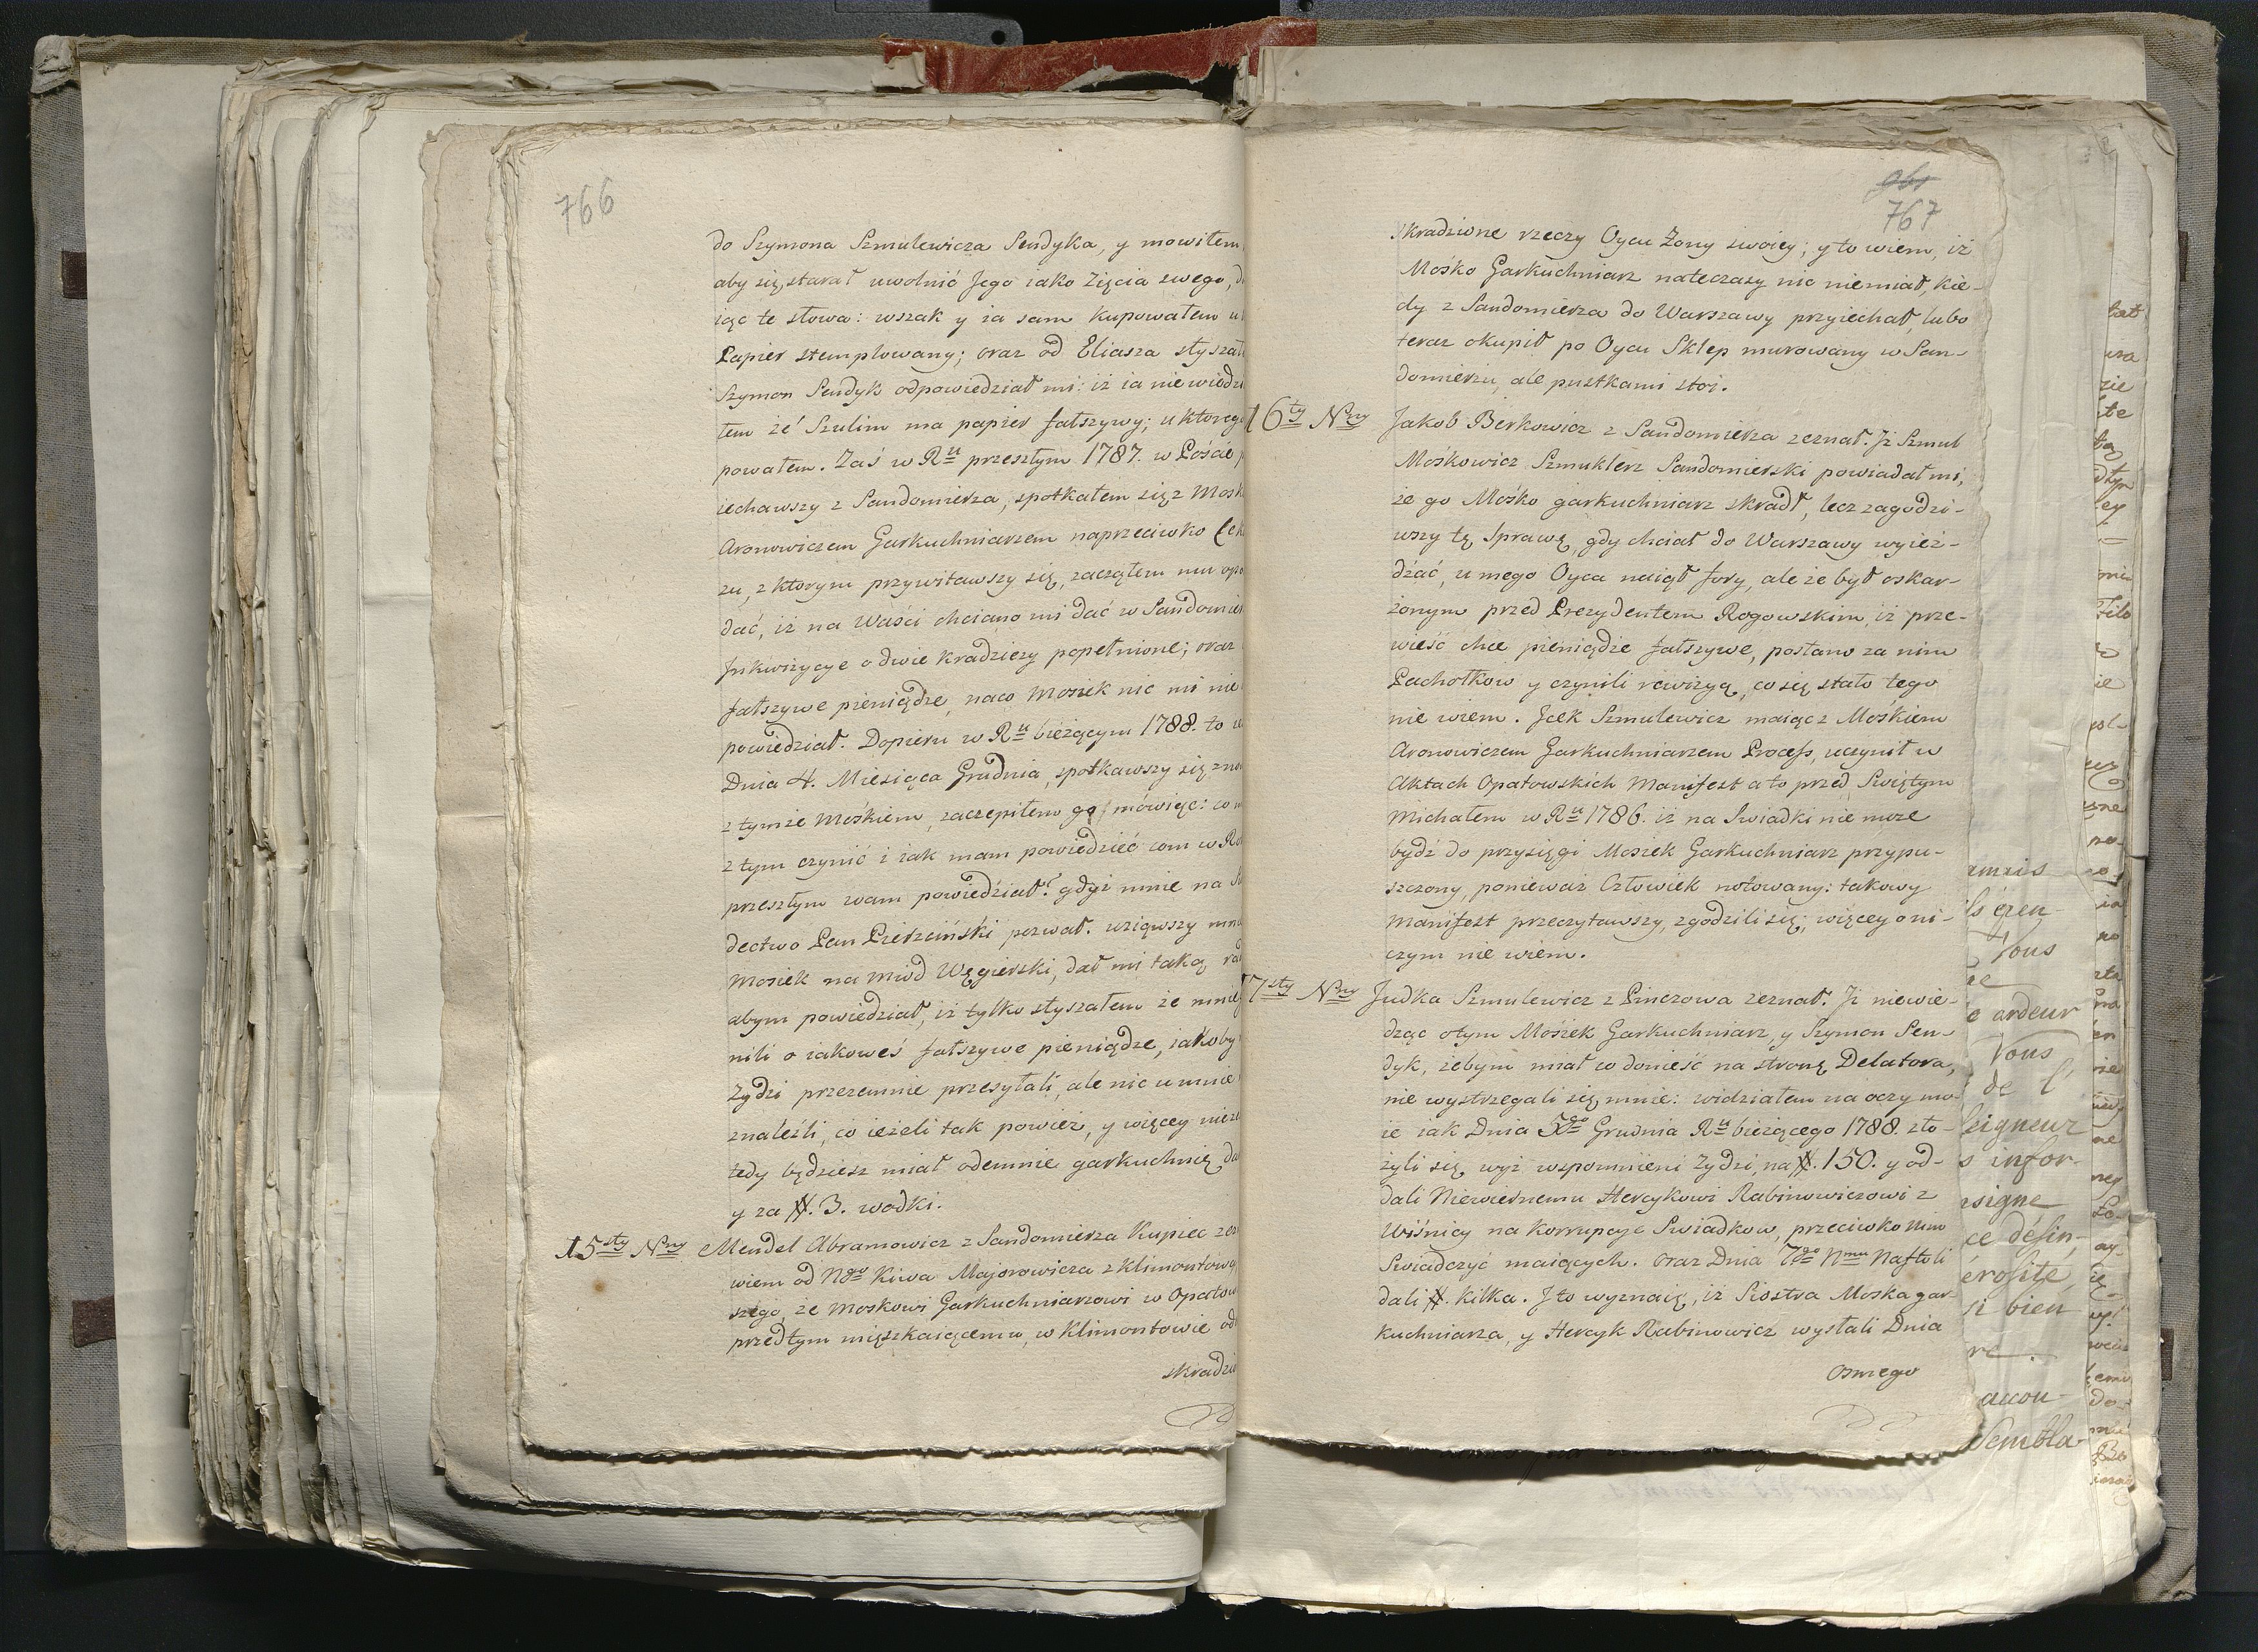 766
do Szymona Szmulewicza Sendyka, y mowiłem,
aby się starał uwolnić Jego iako Zięcia swego,
iąc te słowa: wszak y ia sam kupowałem u
Papier stemplowany; oraz od Eliasza słyszał
Szymon Sendyk odpowiedział mi: iż ia niewiedzi
tem że Szulim ma papier fałszywy; u ktorego
powałem. Zaś w Ru przeszłym 1787. w Poście
iechawszy z Sandomierza, spotkałem się z Mosk
Aronowiczem Garkuchniarzem naprzeciwko
zu, z ktorym przywitawszy się, zacząłem mu opo
dać, iż na Waści chciano mi dać w Sandomier
Jnkwizycye o dwie kradzieży popełnione; oraz
fałszywe pieniądze, naco Mosiek nic mi nie
powiedział. Dopieru w Ru bieżącym 1788. to
Dnia 4. Miesiąca Grudnia, spotkawszy się zno
z tymże Mośkiem, zaczepiłem go mówiąc: co
z tym czynić i iak mam powiedzieć com w Ro
przeszłym wam powiedział? gdyż mnie na
dectwo Pan Pierzciński pozwał. wziąwszy mn
Mosiek na miod Węgierski, dał mi taką rad
abym powiedział, iż tylko słyszałem że mnie
nili o iakoweś fałszywe pieniądze, iakoby
Zydzi przezemnie przesyłali, ale nic u mnie
znaleźli, co ieżeli tak powiesz, y więcey nieze
tedy będziesz miał odemnie garkuchnię
y za #. 3. wodki.
15sty Nny Mendel Abramowicz z Sandomierza Kupiec zez
wiem od Ngo Kiwa Majorowicza z Klimontowa
szego, że Moskowi Garkuchniarzowi w Opatow
przedtym mięszkaiącemu, w Klimontowie od
skradzio
767
skradzione rzeczy Oycu Zony swoiey; y to wiem, iż
Mośko Garkuchniarz nateczasy nic niemiał, kie-
dy z Sandomierza do Warszawy przyiechał, lubo
teraz okupił po Oycu Sklep murowany w San-
domierzu, ale pustkami stoi.
16ty Nny Jakob Berkowicz z Sandomierza zeznał. Jż Szmul
Moskowicz Szmuklerz Sandomierski powiadał mi,
że go Mośko garkuchniarz skradł, lecz zagodzi-
wszy tę Sprawę, gdy chciał do Warszawy wyież-
dżać, u mego Oyca naiął fory, ale że był oskar-
żonym przed Prezydentem Rogowskim, iż prze-
wieść chce pieniądze fałszywe, posłano za nim
Pachołkow y czynili rewizyą, co się stało tego
nie wiem. Jcek Szmulewicz maiąc z Mośkiem
Aronowiczem Garkuchniarzem Process, uczynił w
Aktach Opatowskich Manifest a to przed Swiętym
Michałem w Ru 1786. iż na Swiadki nie może
bydź do przysięgi Mosiek Garkuchniarz przypu-
szczony, ponieważ Człowiek notowany: takowy
Manifest przeczytawszy, zgodzili się; więcey o ni-
czym nie wiem.
17sty Nny Judka Szmulewicz z Pinczowa zeznał. Jż niewie-
dząc o tym Mosiek Garkuchniarz, y Szymon Sen-
dyk, żebym miał co donieść na stronę Delatora,
nie wystrzegali się mnie: widziałem na oczy mo-
ie iak Dnia 5go Grudnia Ru bieżącego 1788. zło-
żyli się wyż wspomnieni Zydzi, na #. 150. y od-
dali Niewiernemu Hercykowi Rabinowiczowi z
Wiśnicy na korrupcye Swiadkow, przeciwko Nim
Swiadczyć maiących. oraz Dnia 7go Nmu Naftoli
dali #. kilka. J to wyznaię, iż Siostra Moska gar-
kuchniarza, y Hercyk Rabinowicz wysłali Dnia
osmego
Vous
ardeur
Vous
de l'
infor-
Sembla-